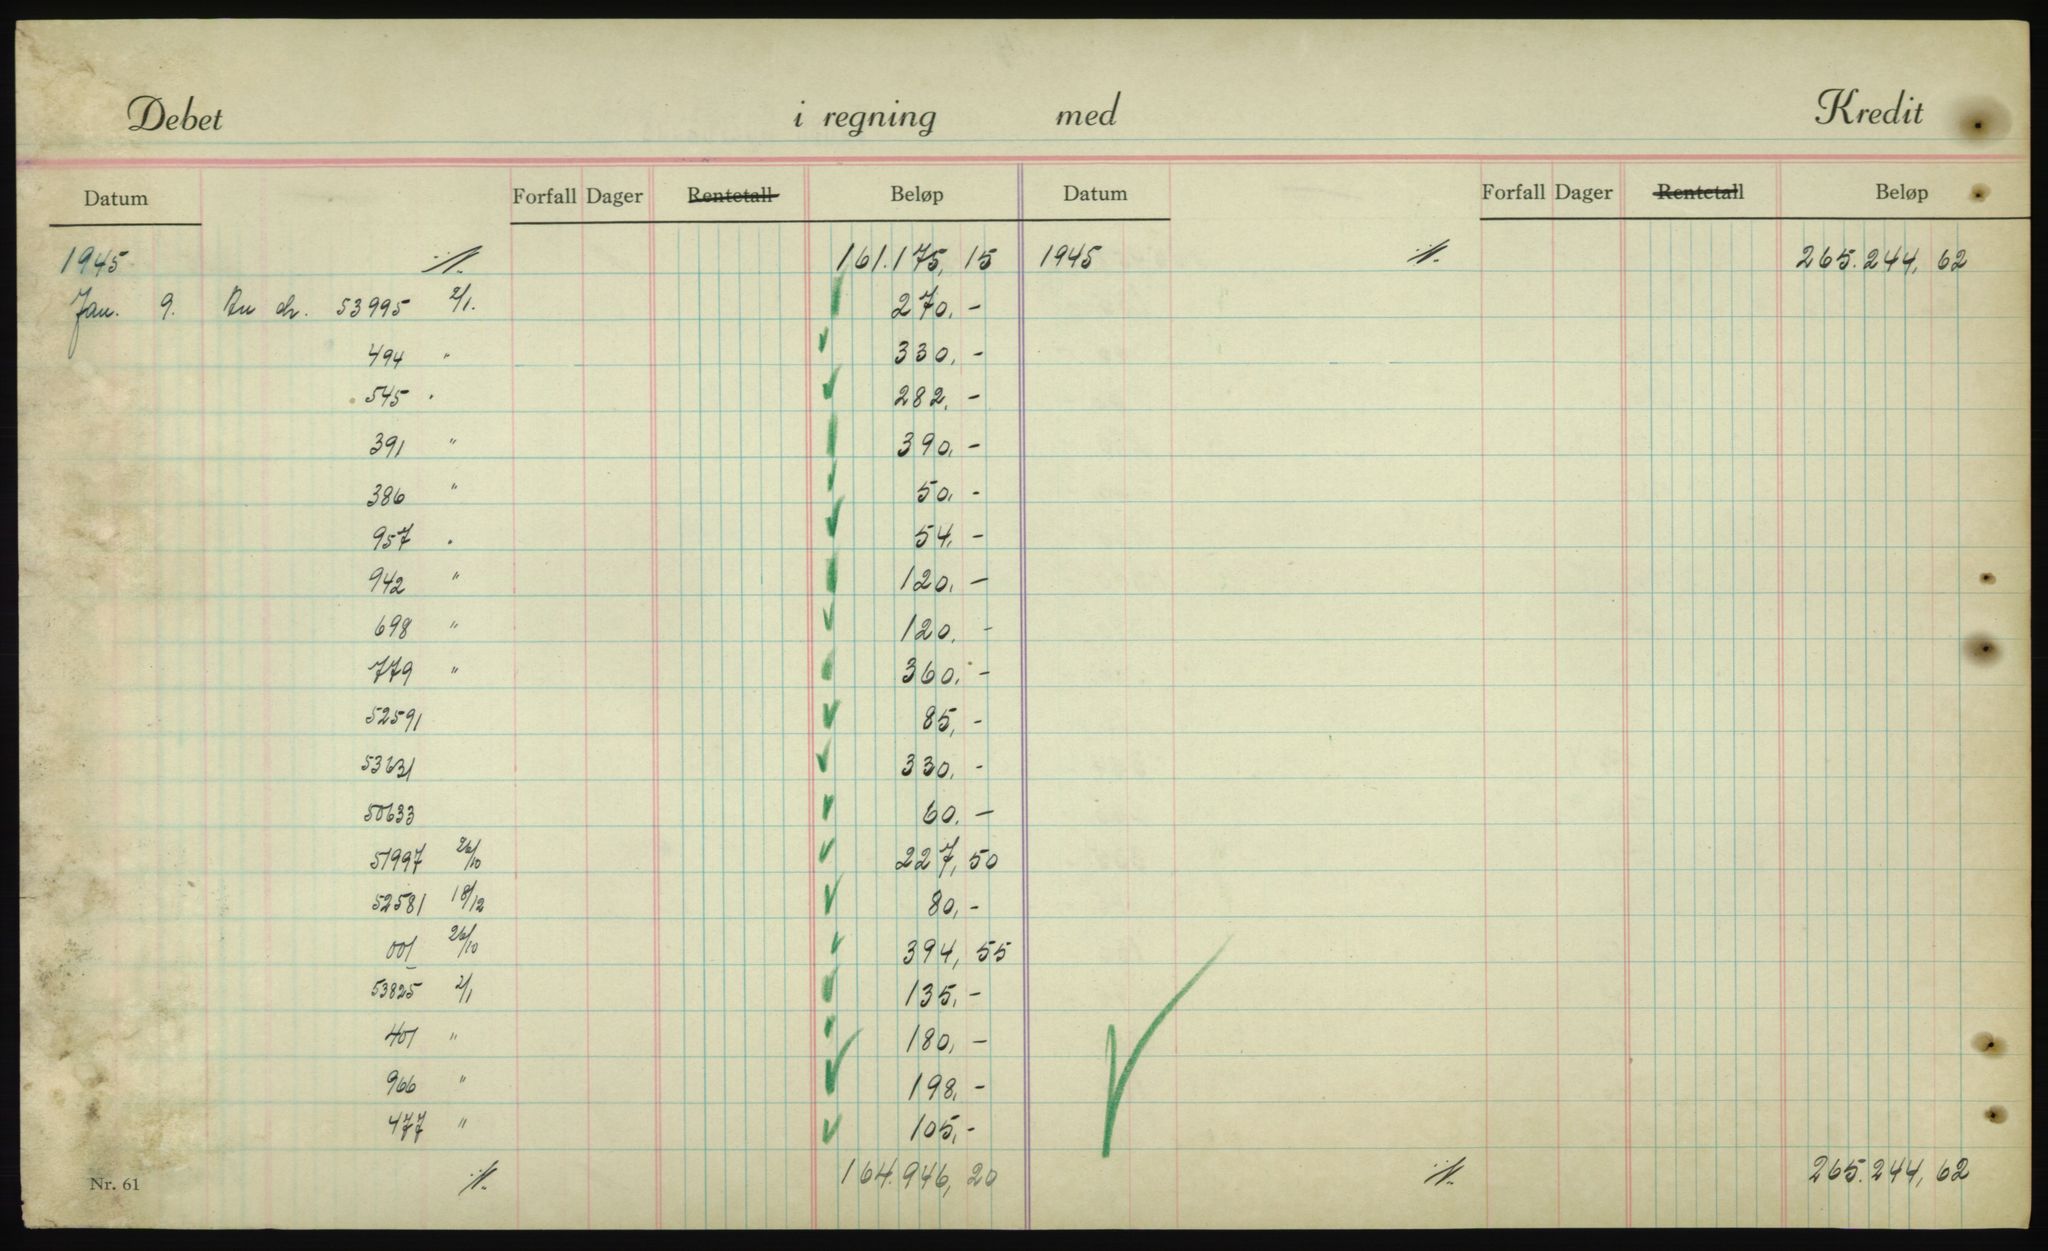 Debet i regning med Kredit
Datum Forfall Dager Rentetall Beløp Datum Forfall Dager Rentetall Beløp
1945 161.175, 15 1945 265.244, 62
Jan. 9. An ch. 53995 2/1. 270, -
494 " 330, -
545 " 282, -
391 " 390, -
386 " 50, -
957 " 54, -
942 " 120, -
698 " 120, -
779 " 360, -
52591 85, -
53631 330, -
50633 60, -
51997 26/10 227, 50
52581 18/12 80, -
001 26/10 394, 55
53825 2/1 135, -
401 " 180, -
966 " 198, -
477 " 105, -
Nr. 61 164.946, 20 265.244, 62